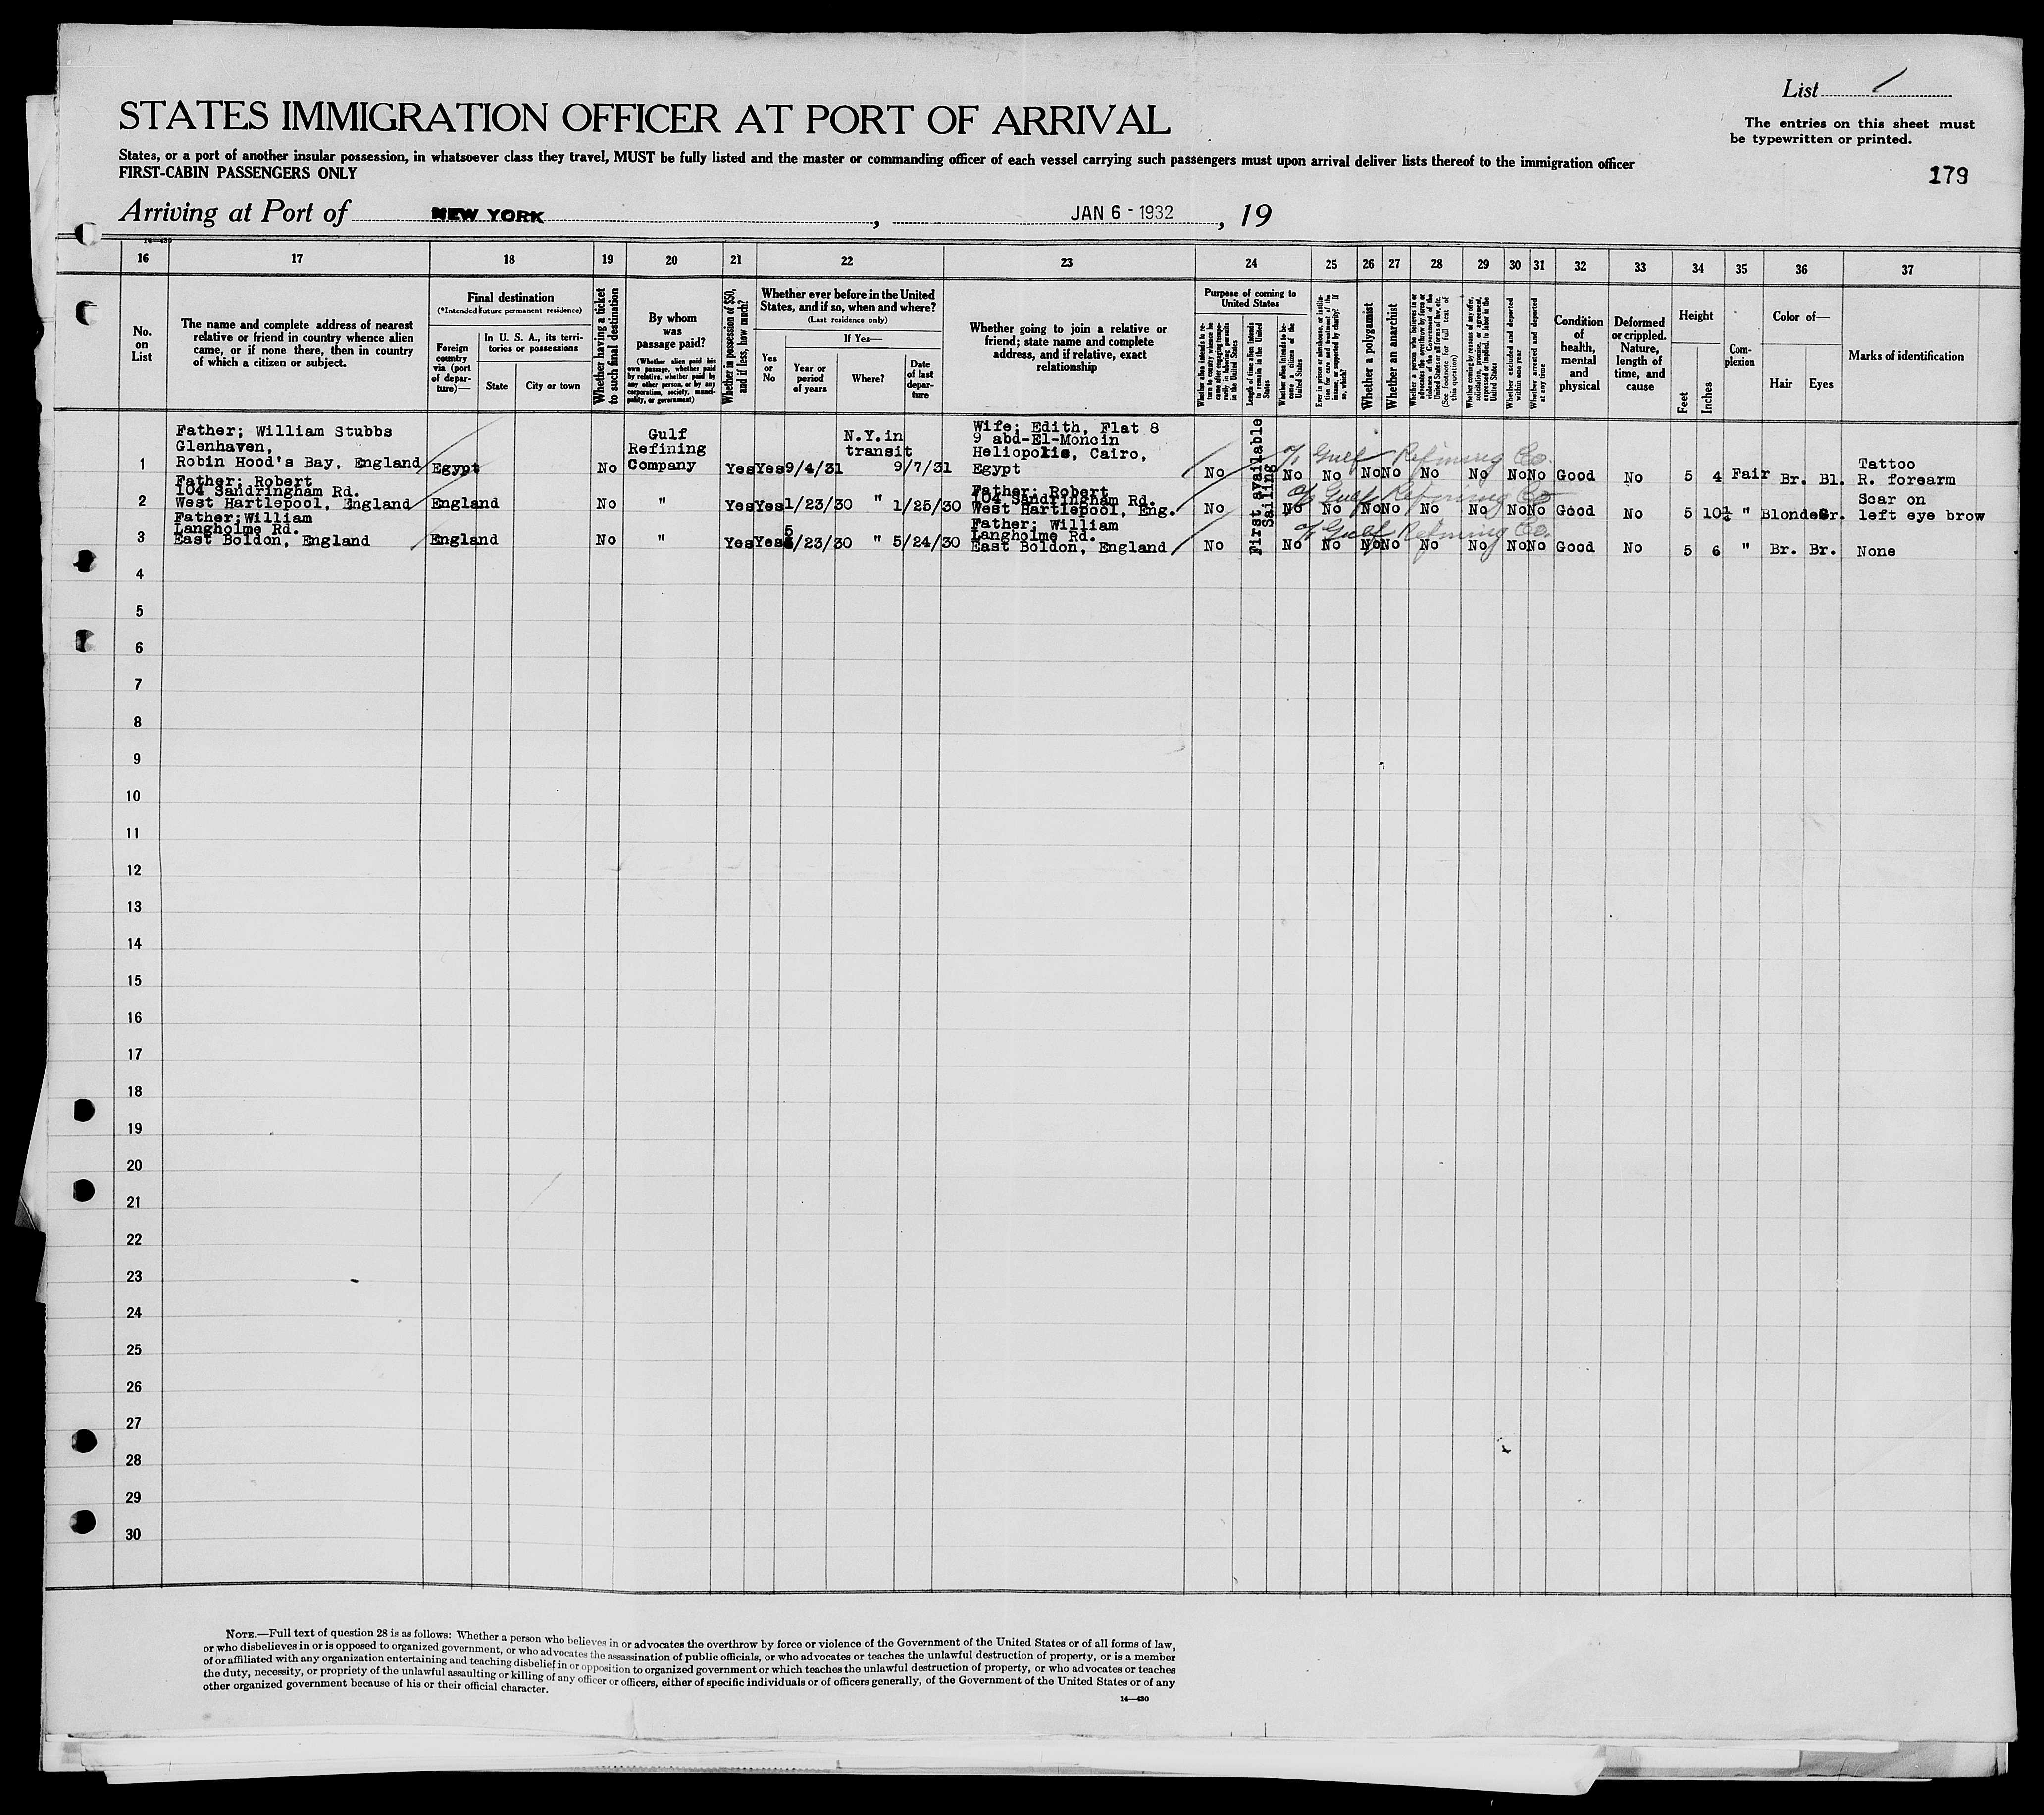 List /
STATES IMMIGRATION OFFICER AT PORT OF ARRIVAL
The entries on this sheet must
be typewritten or printed.
States, or a port of another insular possession, in whatsoever class they travel, MUST be fully listed and the master or commanding officer of each vessel carrying such passengers must upon arrival deliver lists thereof to the immigration officer
FIRST-CABIN PASSENGERS ONLY
179
Arriving at Port of NEW YORK, JAN 6 - 1932, 19
14—430
16 17 18 19 20 21 22 23 24 25 26 27 28 29 30 31 32 33 34 35 36 37
No.
on
List
The name and complete address of nearest
relative or friend in country whence alien
came, or if none there, then in country
of which a citizen or subject.
Final destination
(*Intended future permanent residence)
Foreign
country
via (port
of depar-
ture)—
In U. S. A., its terri-
tories or possessions
State
City or town
Whether having a ticket
to such final destination
By whom
was
passage paid?
(Whether alien paid his
own passage, whether paid
by relative, whether paid by
any other person, or by any
corporation, society, munici-
pality, or government)
Whether in possession of $50,
and if less, how much?
Whether ever before in the United
States, and if so, when and where?
(Last residence only)
Yes
or
No
If Yes—
Year or
period
of years
Where?
Date
of last
depar-
ture
Whether going to join a relative or
friend; state name and complete
address, and if relative, exact
relationship
Purpose of coming to
United States
Whether alien intends to re-
turn to country whence he
came after engaging tempo-
rarily in laboring pursuits
in the United States
Length of time alien intends
to remain in the United
States
Whether alien intends to be-
come a citizen of the
United States
Ever in prison or almshouse, or institu-
tion for care and treatment of the
insane, or supported by charity? If
so, which?
Whether a polygamist
Whether an anarchist
Whether a person who believes in or
advocates the overthrow by force or
violence of the Government of the
United States or all forms of law, etc.
(See footnote for full text of
this question)
Whether coming by reasons of any offer,
solicitation, promise, or agreement,
expressed or implied, to labor in the
United States
Whether excluded and deported
within one year
Whether arrested and deported
at any time
Condition
of
health,
mental
and
physical
Deformed
or crippled.
Nature,
length of
time, and
cause
Height
Feet
Inches
Com-
plexion
Color of—
Hair
Eyes
Marks of identification
1
Father; William Stubbs
Glenhaven,
Robin Hood's Bay, England
Egypt
No
Gulf
Refining
Company
Yes Yes 9/4/31
N.Y.in
transit
9/7/31
Wife; Edith, Flat 8
9 abd-El-Moncin
Heliopolis, Cairo,
Egypt
No
First available
Sailing
c/o Gulf Refining Co.
No No No No No No No No Good No 5 4 Fair Br. Bl.
Tattoo
R. forearm
2
Father; Robert
104 Sandringham Rd.
West Hartlepool, England
England
No " Yes Yes 1/23/30 " 1/25/30
Father; Robert
104 Sandringham Rd.
West Hartlepool, Eng.
No
c/o Gulf Refining Co
No No No No No No No No Good No 5 10½ " Blonde Br.
Scar on
left eye brow
3
Father;William
Langholme Rd.
East Boldon, England
England
No " Yes Yes 5/23/30 " 5/24/30
Father; William
Langholme Rd.
East Boldon, England
No
c/o Gulf Refining Co.
No No No No No No No No Good No 5 6 " Br. Br. None
4
5
6
7
8
9
10
11
12
13
14
15
16
17
18
19
20
21
22
23
24
25
26
27
28
29
30
NOTE.—Full text of question 28 is as follows: Whether a person who believes in or advocates the overthrow by force or violence of the Government of the United States or of all forms of law,
or who disbelieves in or is opposed to organized government, or who advocates the assassination of public officials, or who advocates or teaches the unlawful destruction of property, or is a member
of or affiliated with any organization entertaining and teaching disbelief in or opposition to organized government or which teaches the unlawful destruction of property, or who advocates or teaches
the duty, necessity, or propriety of the unlawful assaulting or killing of any officer or officers, either of specific individuals or of officers generally, of the Government of the United States or of any
other organized government because of his or their official character.
14—430